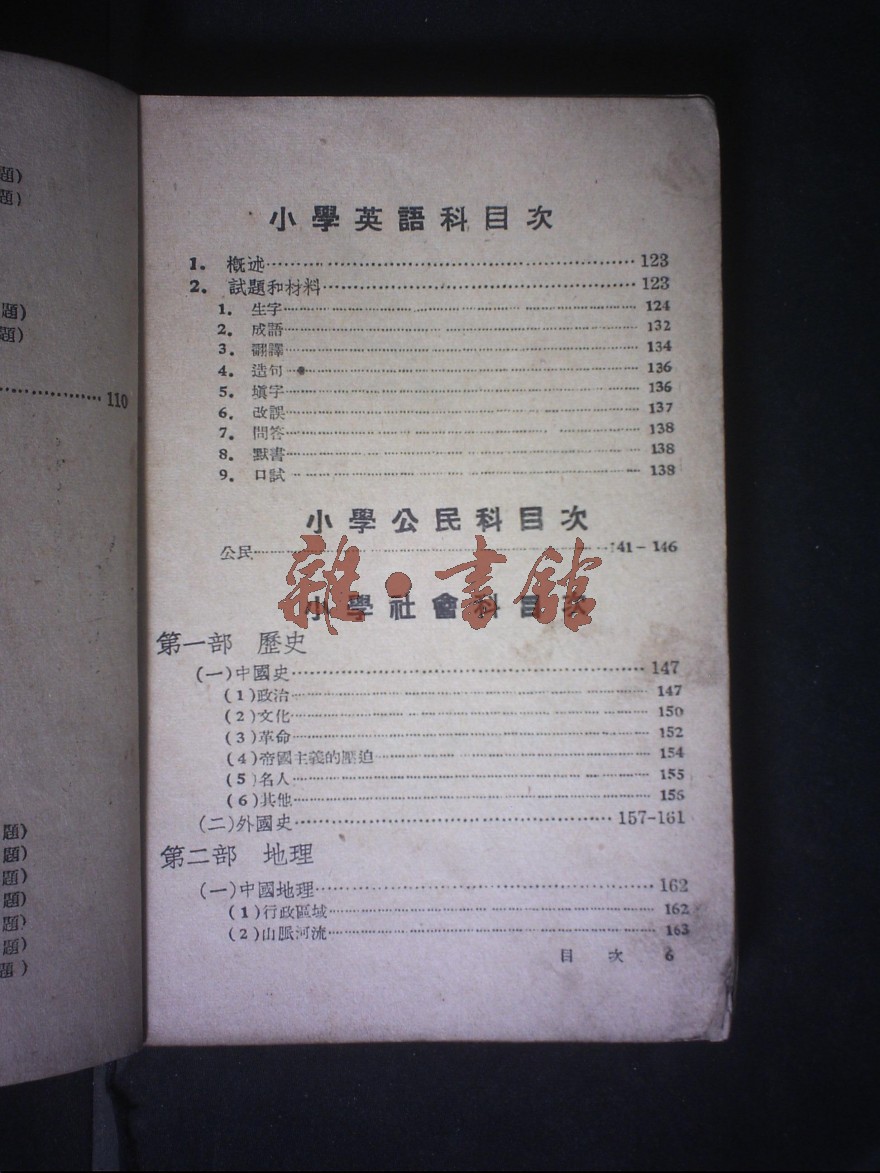 題)
題)
題)
題)
110
題)
題)
題)
題)
題)
題)
題)
小學英語科目次
1. 概述 123
2. 試題和材料 123
1. 生字 124
2. 成語 132
3. 翻譯 134
4. 造句 136
5. 填字 136
6. 改誤 137
7. 問答 138
8. 默書 138
9. 口試 138
小學公民科目次
公民 141-146
雜·書館
小學社會科目次
第一部 歷史
(一)中國史 147
(1)政治 147
(2)文化 150
(3)革命 152
(4)帝國主義的壓迫 154
(5)名人 155
(6)其他 156
(二)外國史 157-161
第二部 地理
(一)中國地理 162
(1)行政區域 162
(2)山脈河流 163
目次 6